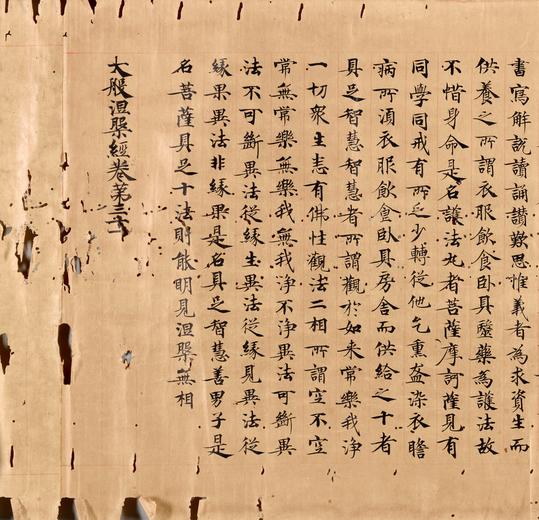 書寫解說讀誦讃歎思惟義者為求資生而
供養之所謂衣服飲食臥具醫藥為護法故
不惜身命是名護法九者菩薩摩訶薩見有
同學同戒有所乏少轉從他乞熏盋染衣瞻
病所湏衣服飲食臥具房舍而供給之十者
具足智慧智慧者所謂觀於如来常樂我淨
一切衆生悉有佛性觀法二相所謂空不空
常無常樂無樂我無我淨不淨異法可斷異
法不可斷異法從緣生異法從緣見異法從
緣果異法非緣果是名具足智慧善男子是
名菩薩具足十法則能明見涅槃無相
大般涅槃經卷第三十